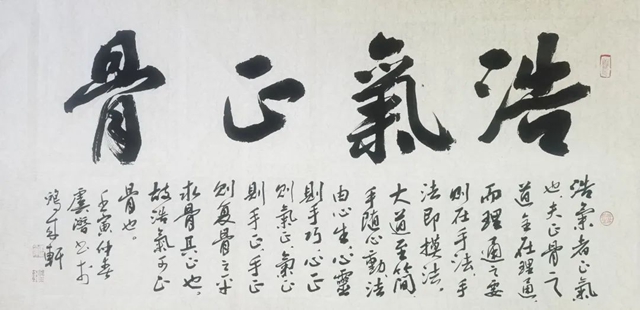 浩氣正骨
浩氣者正氣
也夫正骨之
道全在理通
而理通之要
則在手法手
法即摸法
大道至简
手随心動法
由心生心靈
則手巧心正
則氣正氣正
則手正手正
則復骨之平
求骨其正也
故浩氣可正
骨也
壬寅仲春
虞潛書於
軒